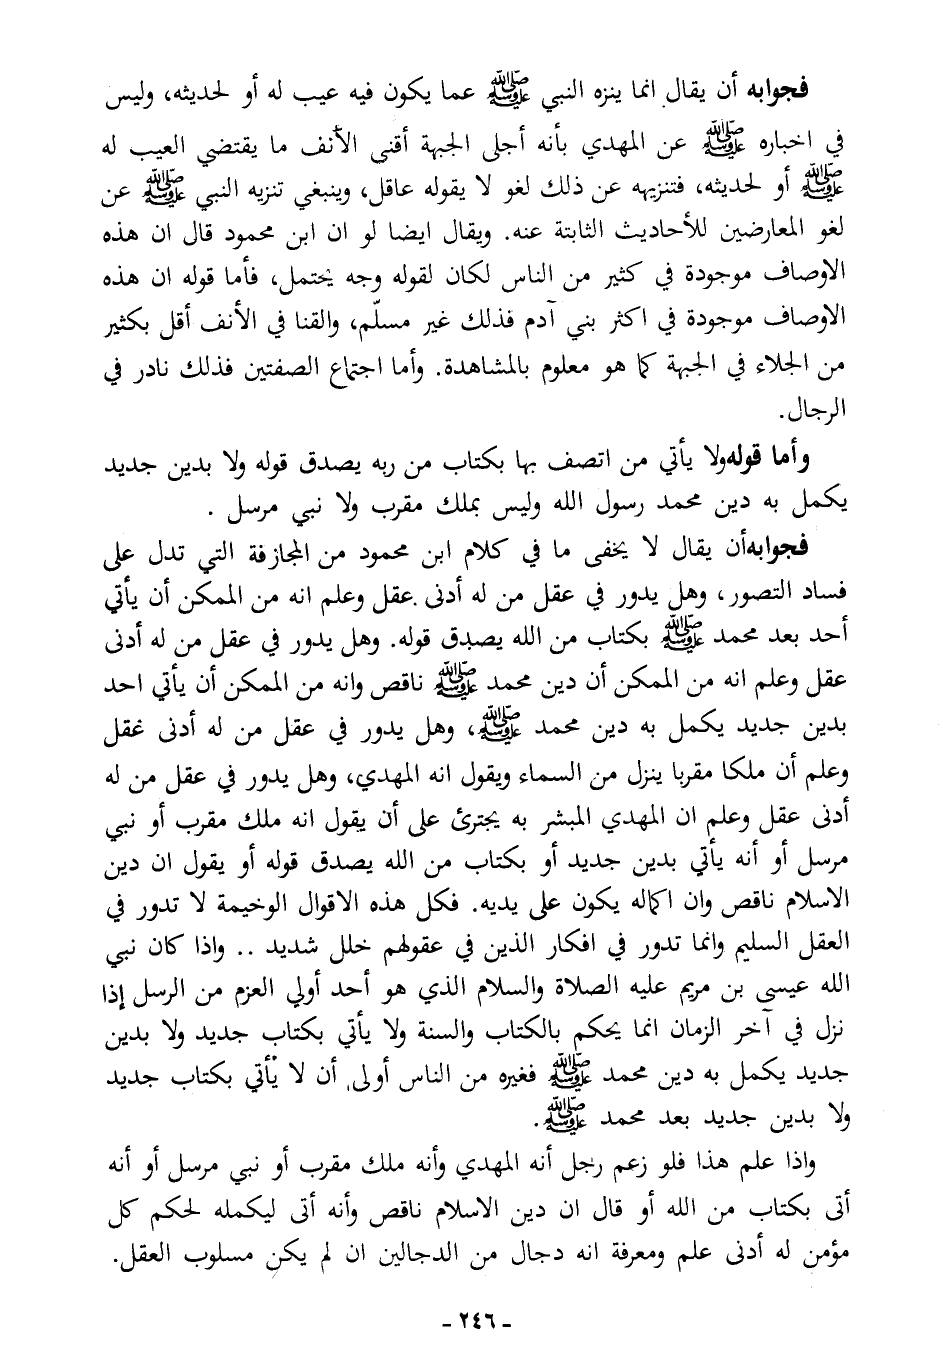 فجوابه أن يقال انما ينزه النبي ﷺ عما يكون فيه عيب له أو لحديثه، وليس
في اخباره ﷺ عن المهدي بأنه أجلى الجبهة أقنى الأنف ما يقتضي العيب له
ﷺ أو لحديثه، فتنزيهه عن ذلك لغو لا يقوله عاقل، وينبغي تنزيه النبي ﷺ عن
لغو المعارضين للأحاديث الثابتة عنه. ويقال ايضا لو ان ابن محمود قال ان هذه
الاوصاف موجودة في كثير من الناس لكان لقوله وجه يحتمل، فأما قوله ان هذه
الاوصاف موجودة في اكثر بني آدم فذلك غير مسلّم، والقنا في الأنف أقل بكثير
من الجلاء في الجبهة كما هو معلوم بالمشاهدة. وأما اجتماع الصفتين فذلك نادر في
الرجال.
وأما قوله ولا يأتي من اتصف بها بكتاب من ربه يصدق قوله ولا بدين جديد
يكمل به دين محمد رسول الله وليس بملك مقرب ولا نبي مرسل .
فجوابه أن يقال لا يخفى ما في كلام ابن محمود من المجازفة التي تدل على
فساد التصور، وهل يدور في عقل من له أدنى عقل وعلم انه من الممكن أن يأتي
أحد بعد محمد ﷺ بكتاب من الله يصدق قوله. وهل يدور في عقل من له أدنى
عقل وعلم انه من الممكن أن دين محمد ﷺ ناقص وانه من الممكن أن يأتي احد
بدين جديد يكمل به دين محمد ﷺ، وهل يدور في عقل من له أدنى عقل
وعلم أن ملكا مقربا ينزل من السماء ويقول انه المهدي، وهل يدور في عقل من له
أدنى عقل وعلم ان المهدي المبشر به يجترئ على أن يقول انه ملك مقرب أو نبي
مرسل أو أنه يأتي بدين جديد أو بكتاب من الله يصدق قوله أو يقول ان دين
الاسلام ناقص وان اكماله يكون على يديه. فكل هذه الاقوال الوخيمة لا تدور في
العقل السليم وانما تدور في افكار الذين في عقولهم خلل شديد .. واذا كان نبي
الله عيسى بن مريم عليه الصلاة والسلام الذي هو أحد أولي العزم من الرسل إذا
نزل في آخر الزمان انما يحكم بالكتاب والسنة ولا يأتي بكتاب جديد ولا بدين
جديد يكمل به دين محمد ﷺ فغيره من الناس أولى أن لا يأتي بكتاب جديد
ولا بدين جديد بعد محمد ﷺ.
واذا علم هذا فلو زعم رجل أنه المهدي وأنه ملك مقرب أو نبي مرسل أو أنه
أتى بكتاب من الله أو قال ان دين الاسلام ناقص وأنه أتى ليكمله لحكم كل
مؤمن له أدنى علم ومعرفة انه دجال من الدجالين ان لم يكن مسلوب العقل.
- ٢٤٦ -